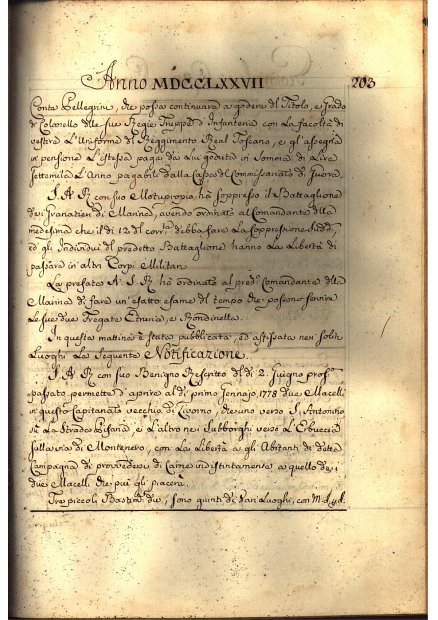 Anno MDCCLXXVII 203
Conte Pellegrini, che possa continuare a godere del Titolo, e Grado
di Colonello delle sue Regie Truppe d'Infanteria con la facoltà di
vestire L'Uniforme del Reggimento Real Toscano, e gl'assegna
in pensione L'istessa paga da lui goduta in somma di Lire
settemila L'Anno pagabili dalla Cassa del Commissariato di Guerra.
S. A. R. con suo Motuproprio ha soppresso il Battaglione
dei Granatieri di Marina, avendo ordinato al Comandante della
medesima che il dì 12 del corrte debba fare La soppressione
ed gl'Individui del predetto Battaglione hanno La Libertà di
passare in altri Corpi Militari.
La prefata A. S. R. ha ordinato al predo Comandante della
Marina di fare un'esatto esame del tempo che possono servire
Le sue due Fregate Etruria, e Rondinella.
In questa mattina è stata pubblicata, ed affissata nei soliti
Luoghi La seguente Notificazione.
S. A. R. con suo Benigno Rescritto del dì 2 Giugno pross
passato permette d'aprire al dì primo Gennajo 1778 due Macelli
in questo Capitanato vecchio di Livorno, che uno verso S. Antonino
su La Strada Pisana, e L'altro nei Subborghi verso L'Erbuccia
sulla via di Montenero, con La Libertà a gli Abitanti di dette
Campagna di provvedersi di Carne indistintamente a quello dei
due Macelli che più gli piacerà.
Tre piccoli Bastimti sono giunti di Vari Luoghi, con